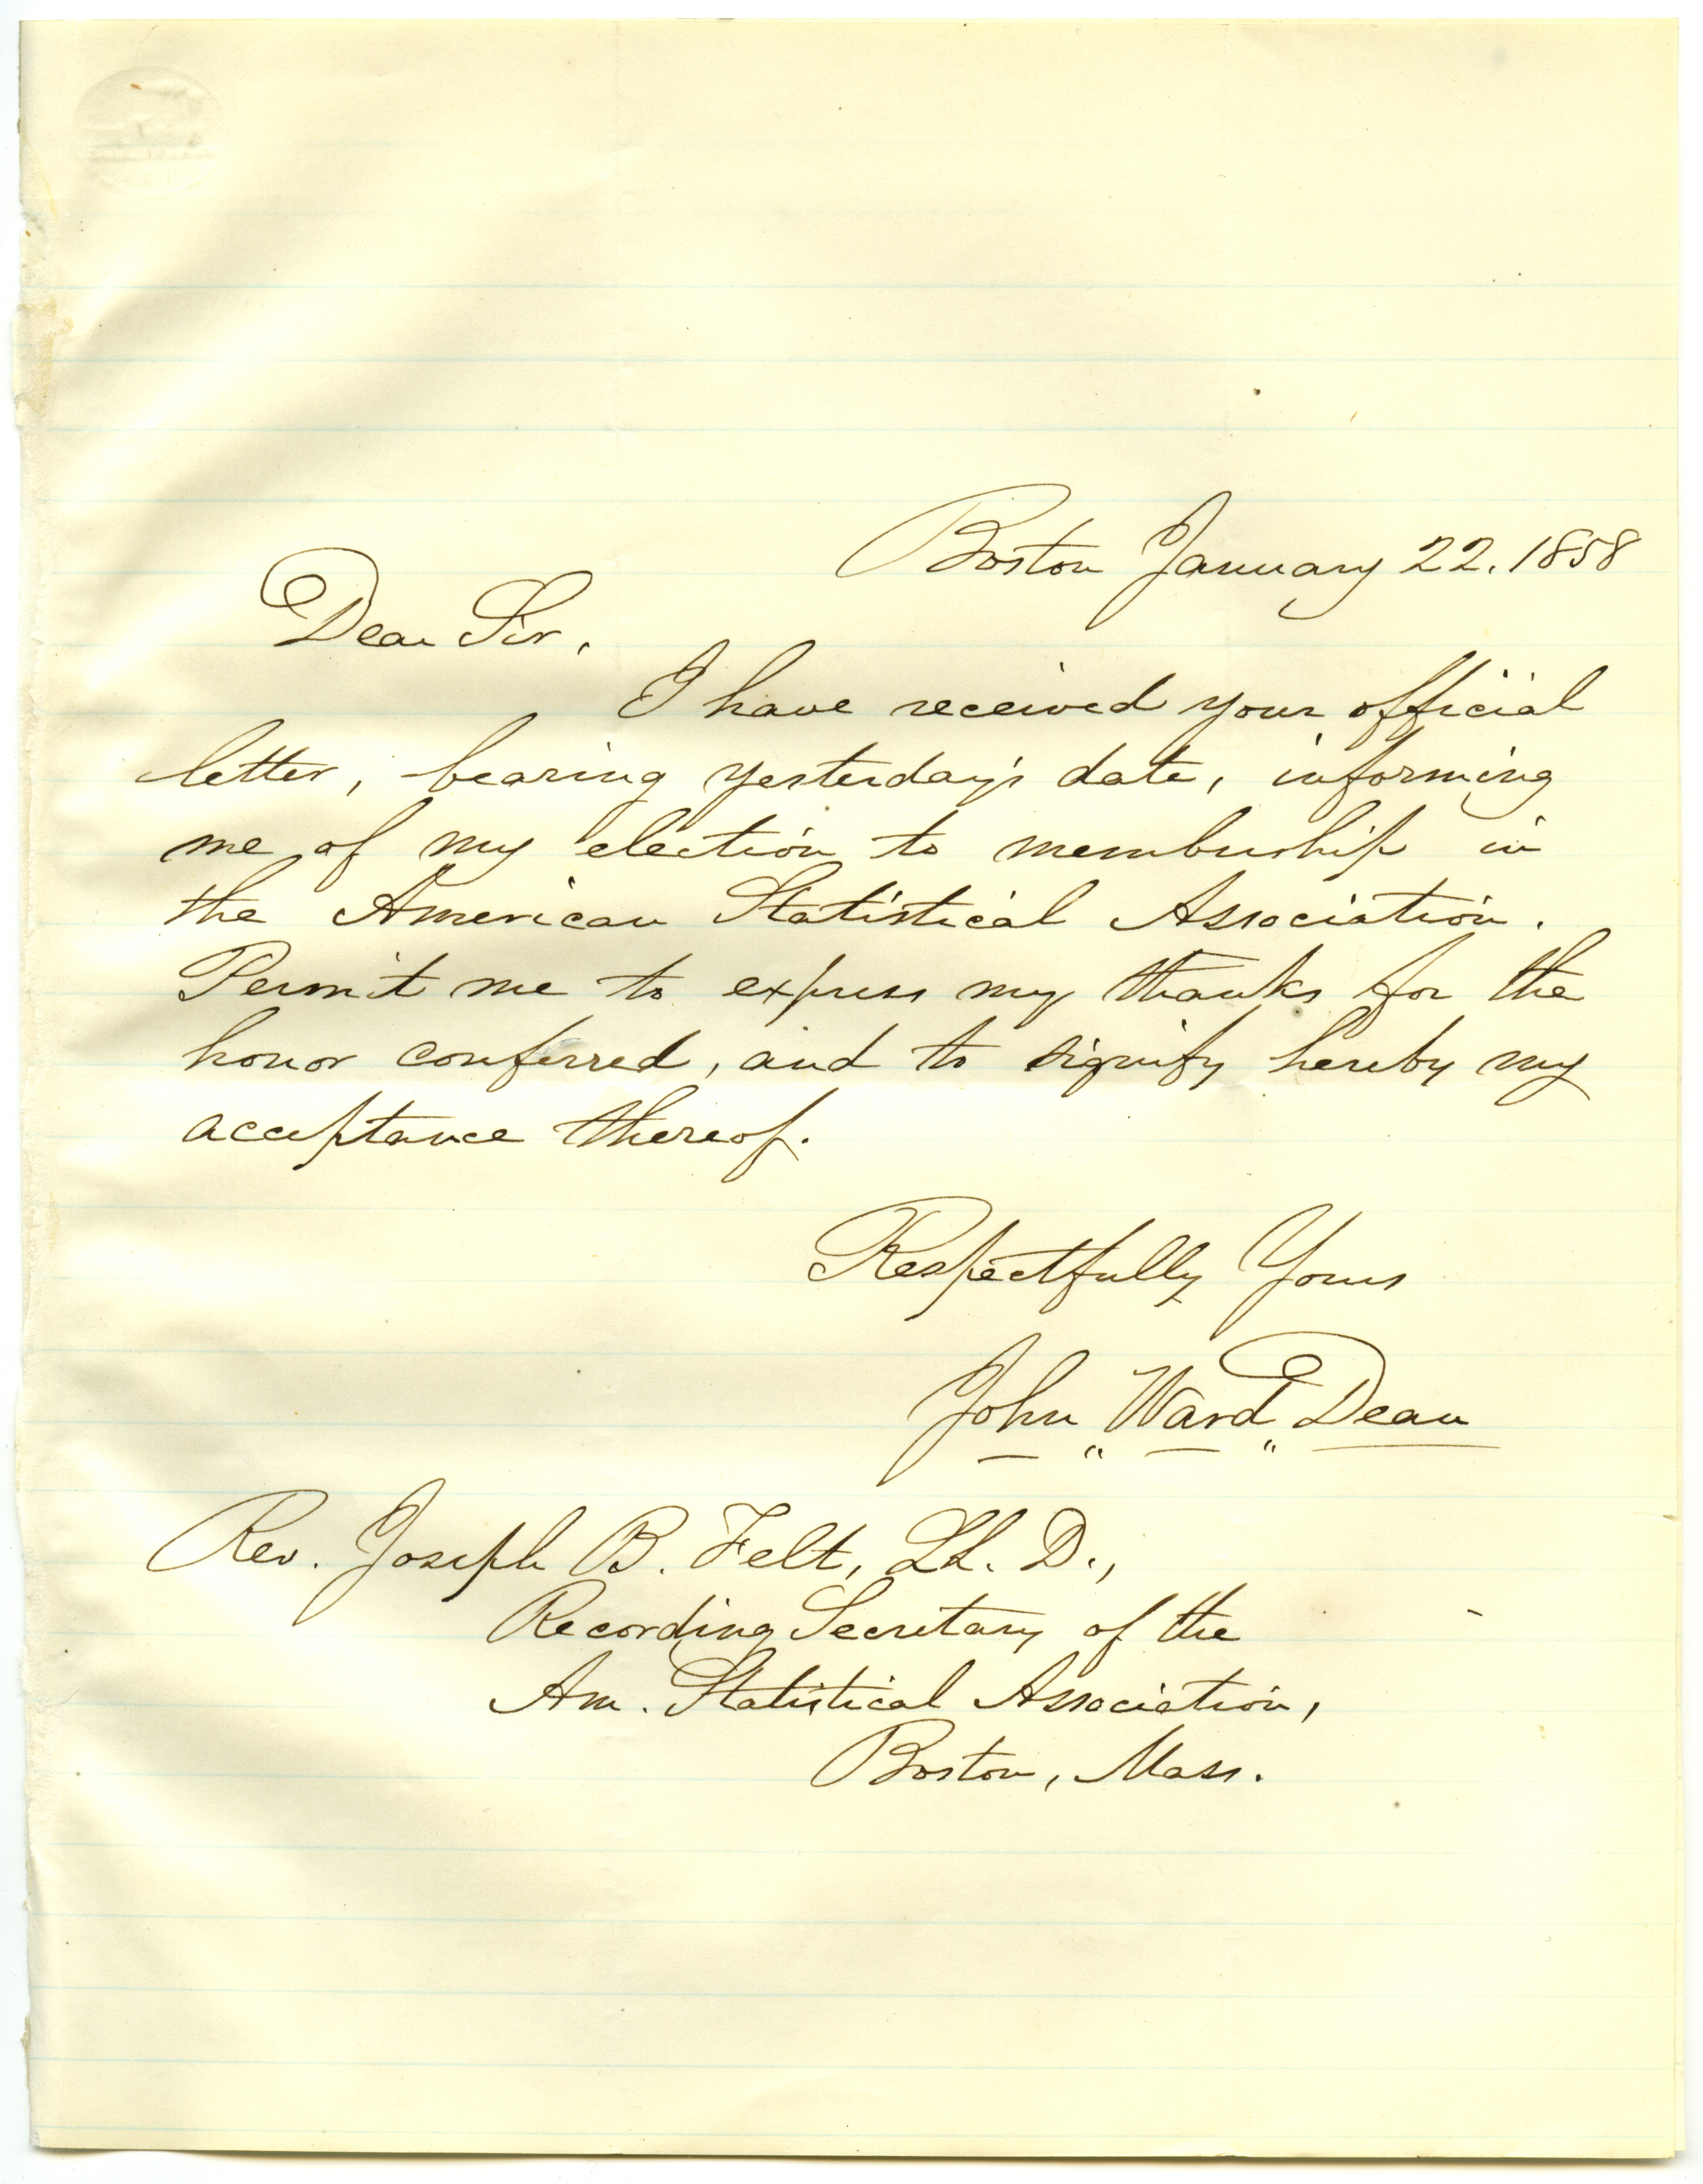 Boston January 22. 1858
Dear Sir,
I have received your official
letter, bearing yesterday's date, informing
me of my election to membership in
the American Statistical Association.
Permit me to express my thanks for the
honor conferred, and to signify hereby my
acceptance thereof.
Respectfully Yours
John Ward Dean
Rev. Joseph B. Felt, LL. D.,
Recording Secretary of the
Am. Statistical Association,
Boston, Mass.